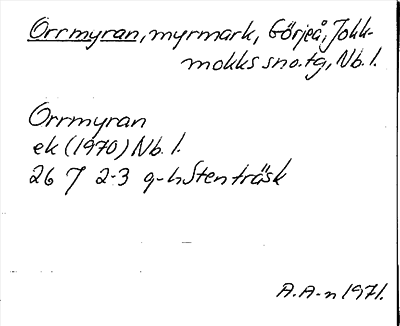 Orrmyran, myrmark, Görjeå, Jokk-
mokks sno.tg, Nb. l.
Orrmyran
ek (1970) Nb. l.
26 J 2-3 g-h Stenträsk
A.A-n 1971.